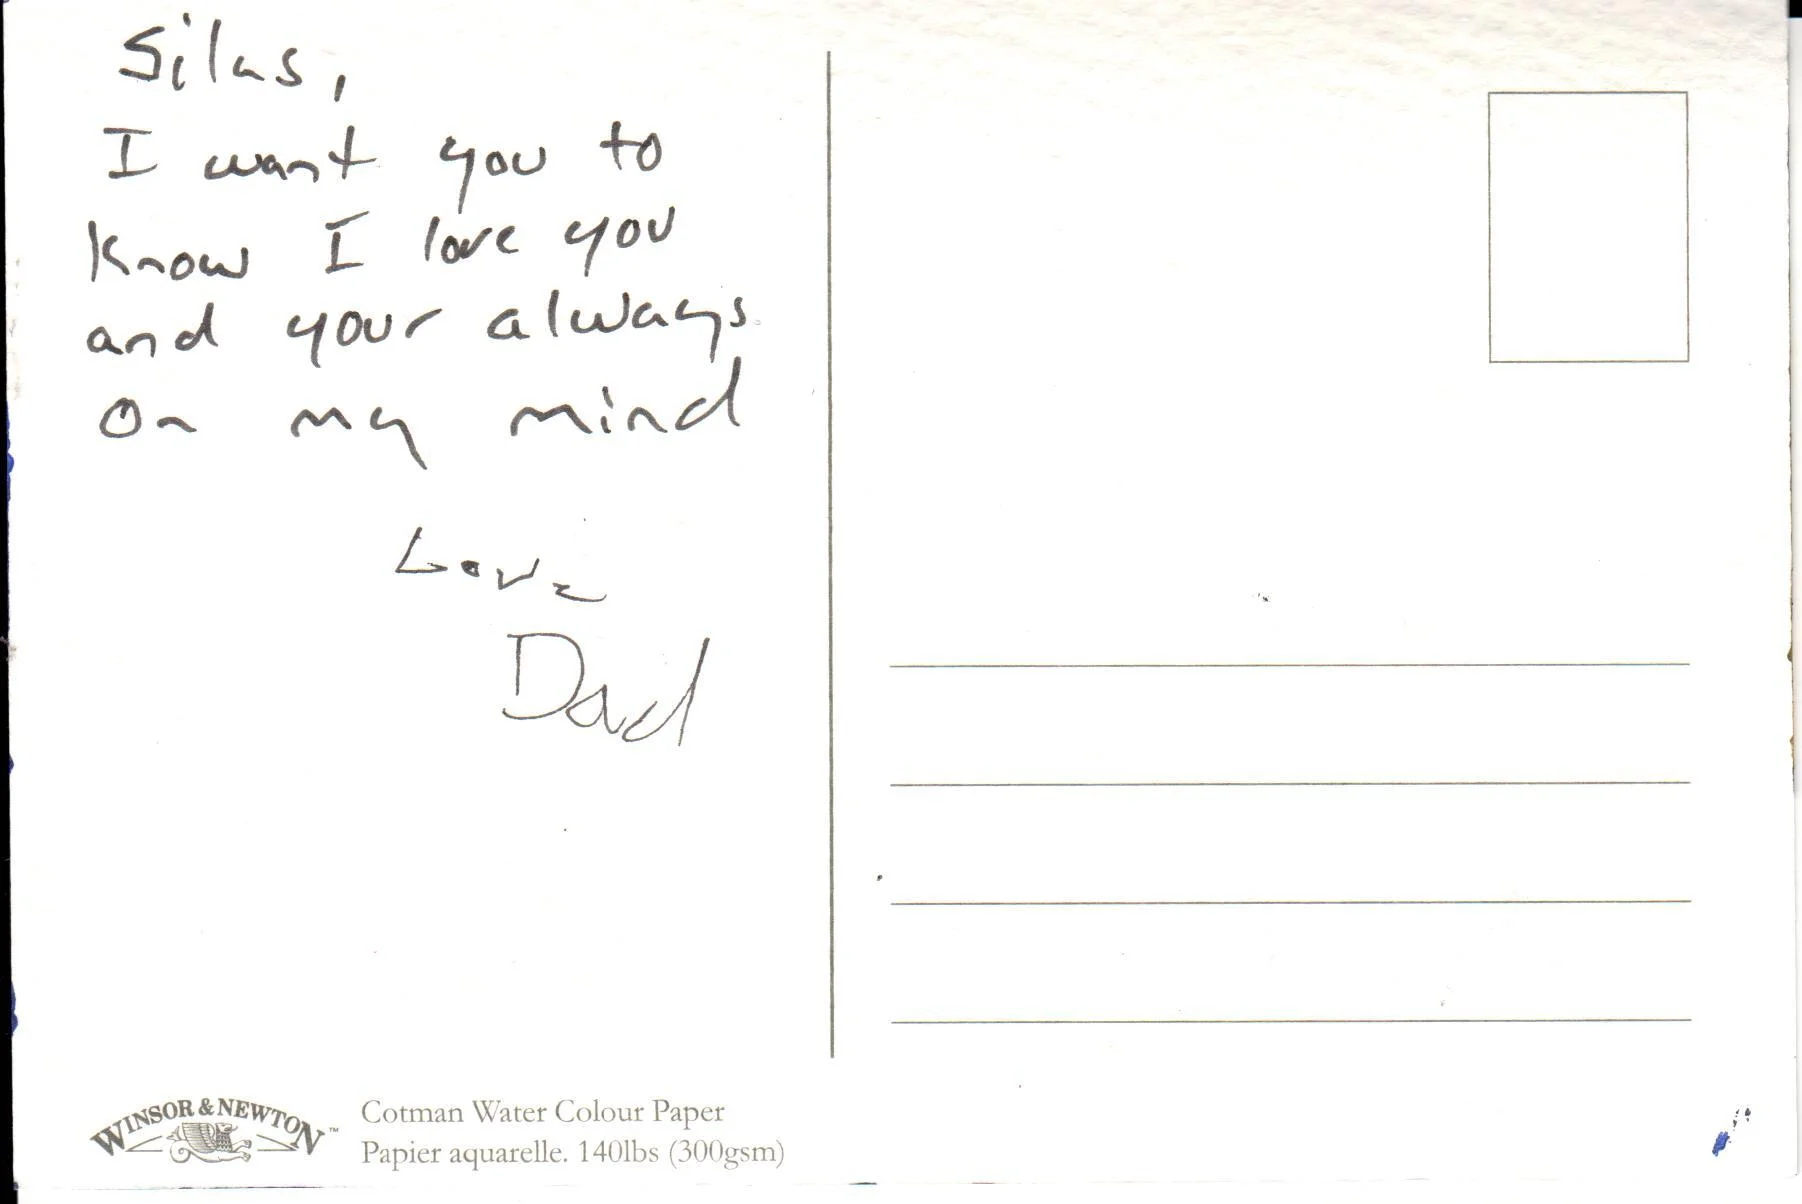 Silas,
I want you to
know I love you
and your always
on my mind
Love
Dad
WINSOR & NEWTON™
Cotman Water Colour Paper
Papier aquarelle. 140lbs (300gsm)